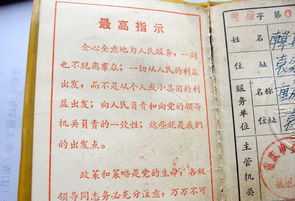 最高指示
全心全意地为人民服务，一刻
也不脱离群众；一切从人民的利益
出发，而不是从个人或小集团的利
益出发；向人民负责和向党的领导
机关负责的一致性；这些就是我们
的出发点。
政策和策略是党的生命，各级
领导同志务必充分注意，万万不可
字第
姓名
住址
服务单位
名称
地址
主管机关